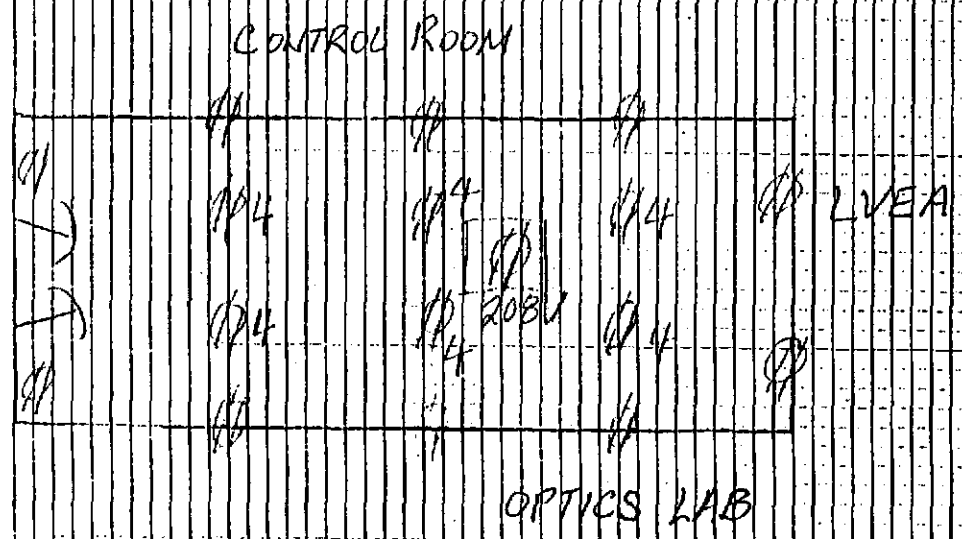 CONTROL ROOM
4 4 4 LVEA
208V
4 4 4
OPTICS LAB